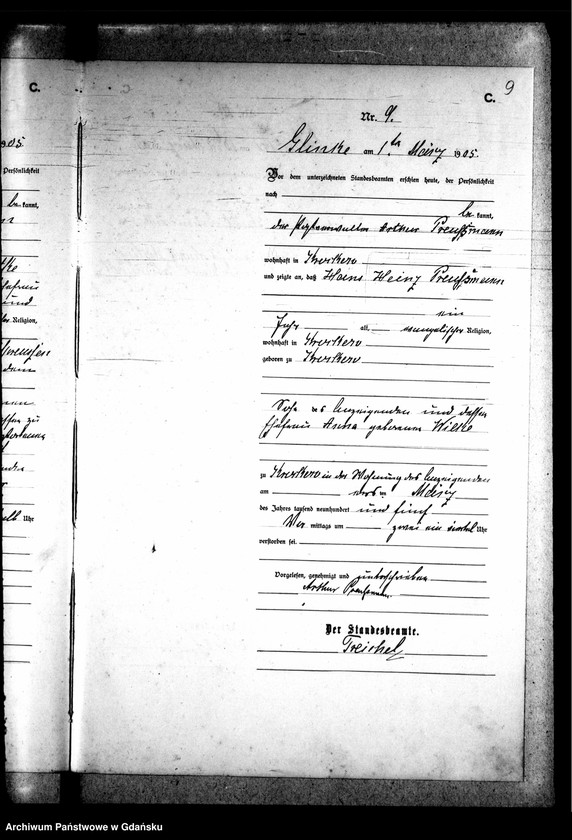 C.
9
Nr. 9.
Glinke am 1ten März 1905.
Vor dem unterzeichneten Standesbeamten erschien heute, der Persönlichkeit
nach
be kannt,
der Arthur Preußmann
wohnhaft in
und zeigte an, daß Hans Heinz Preußmann
ein
Jahr alt, evangelischer Religion,
wohnhaft in
geboren zu
Sohn des Anzeigenden und dessen
Ehefrau Anna geborenen Wilke
zu in der Wohnung des Anzeigenden
am ersten März
des Jahres tausend neunhundert und fünf
Vor mittags um zwei ein viertel Uhr
verstorben sei.
Vorgelesen, genehmigt und unterschrieben
Arthur Preußmann
Der Standesbeamte.
Treichel
C.
905.
Persönlichkeit
be kannt,
Religion,
und
zu
Uhr
Archiwum Państwowe w Gdańsku